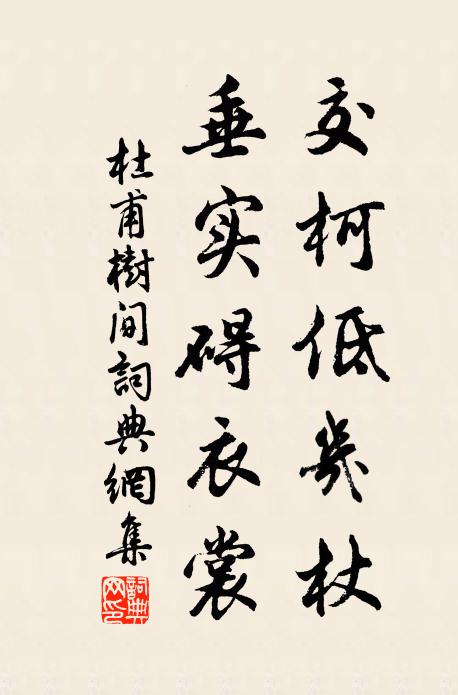 交柯低幾杖
垂实碍衣裳
杜甫樹间詞典網集
詞典网印